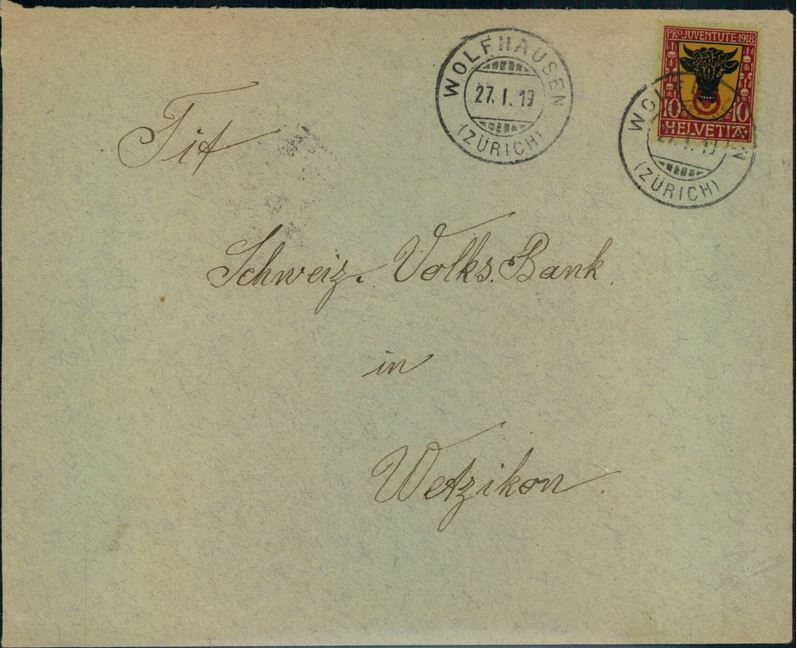 WOLFHAUSEN
27.I.19
(ZÜRICH)
PRO JUVENTUTE·1918
10 10
HELVETIA
WOL N
27.I.19
(ZÜRICH)
Tit
Schweiz. Volks. Bank.
in
Wetzikon.